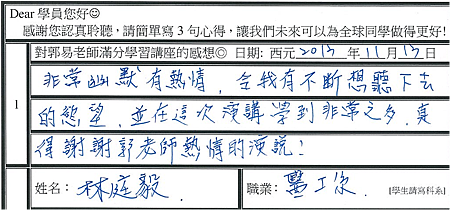 Dear 學員您好☺
感謝您認真聆聽，請簡單寫 3 句心得，讓我們未來可以為全球同學做得更好!
對郭易老師滿分學習講座的感想☺ 日期: 西元 2013 年 11 月 13 日
1
非常幽默有熱情，令我有不斷想聽下去
的慾望，並在這次演講學到非常之多，真
得謝謝郭老師熱情的演說！
姓名： 林庭毅 職業： 醫工系 [學生請寫科系]